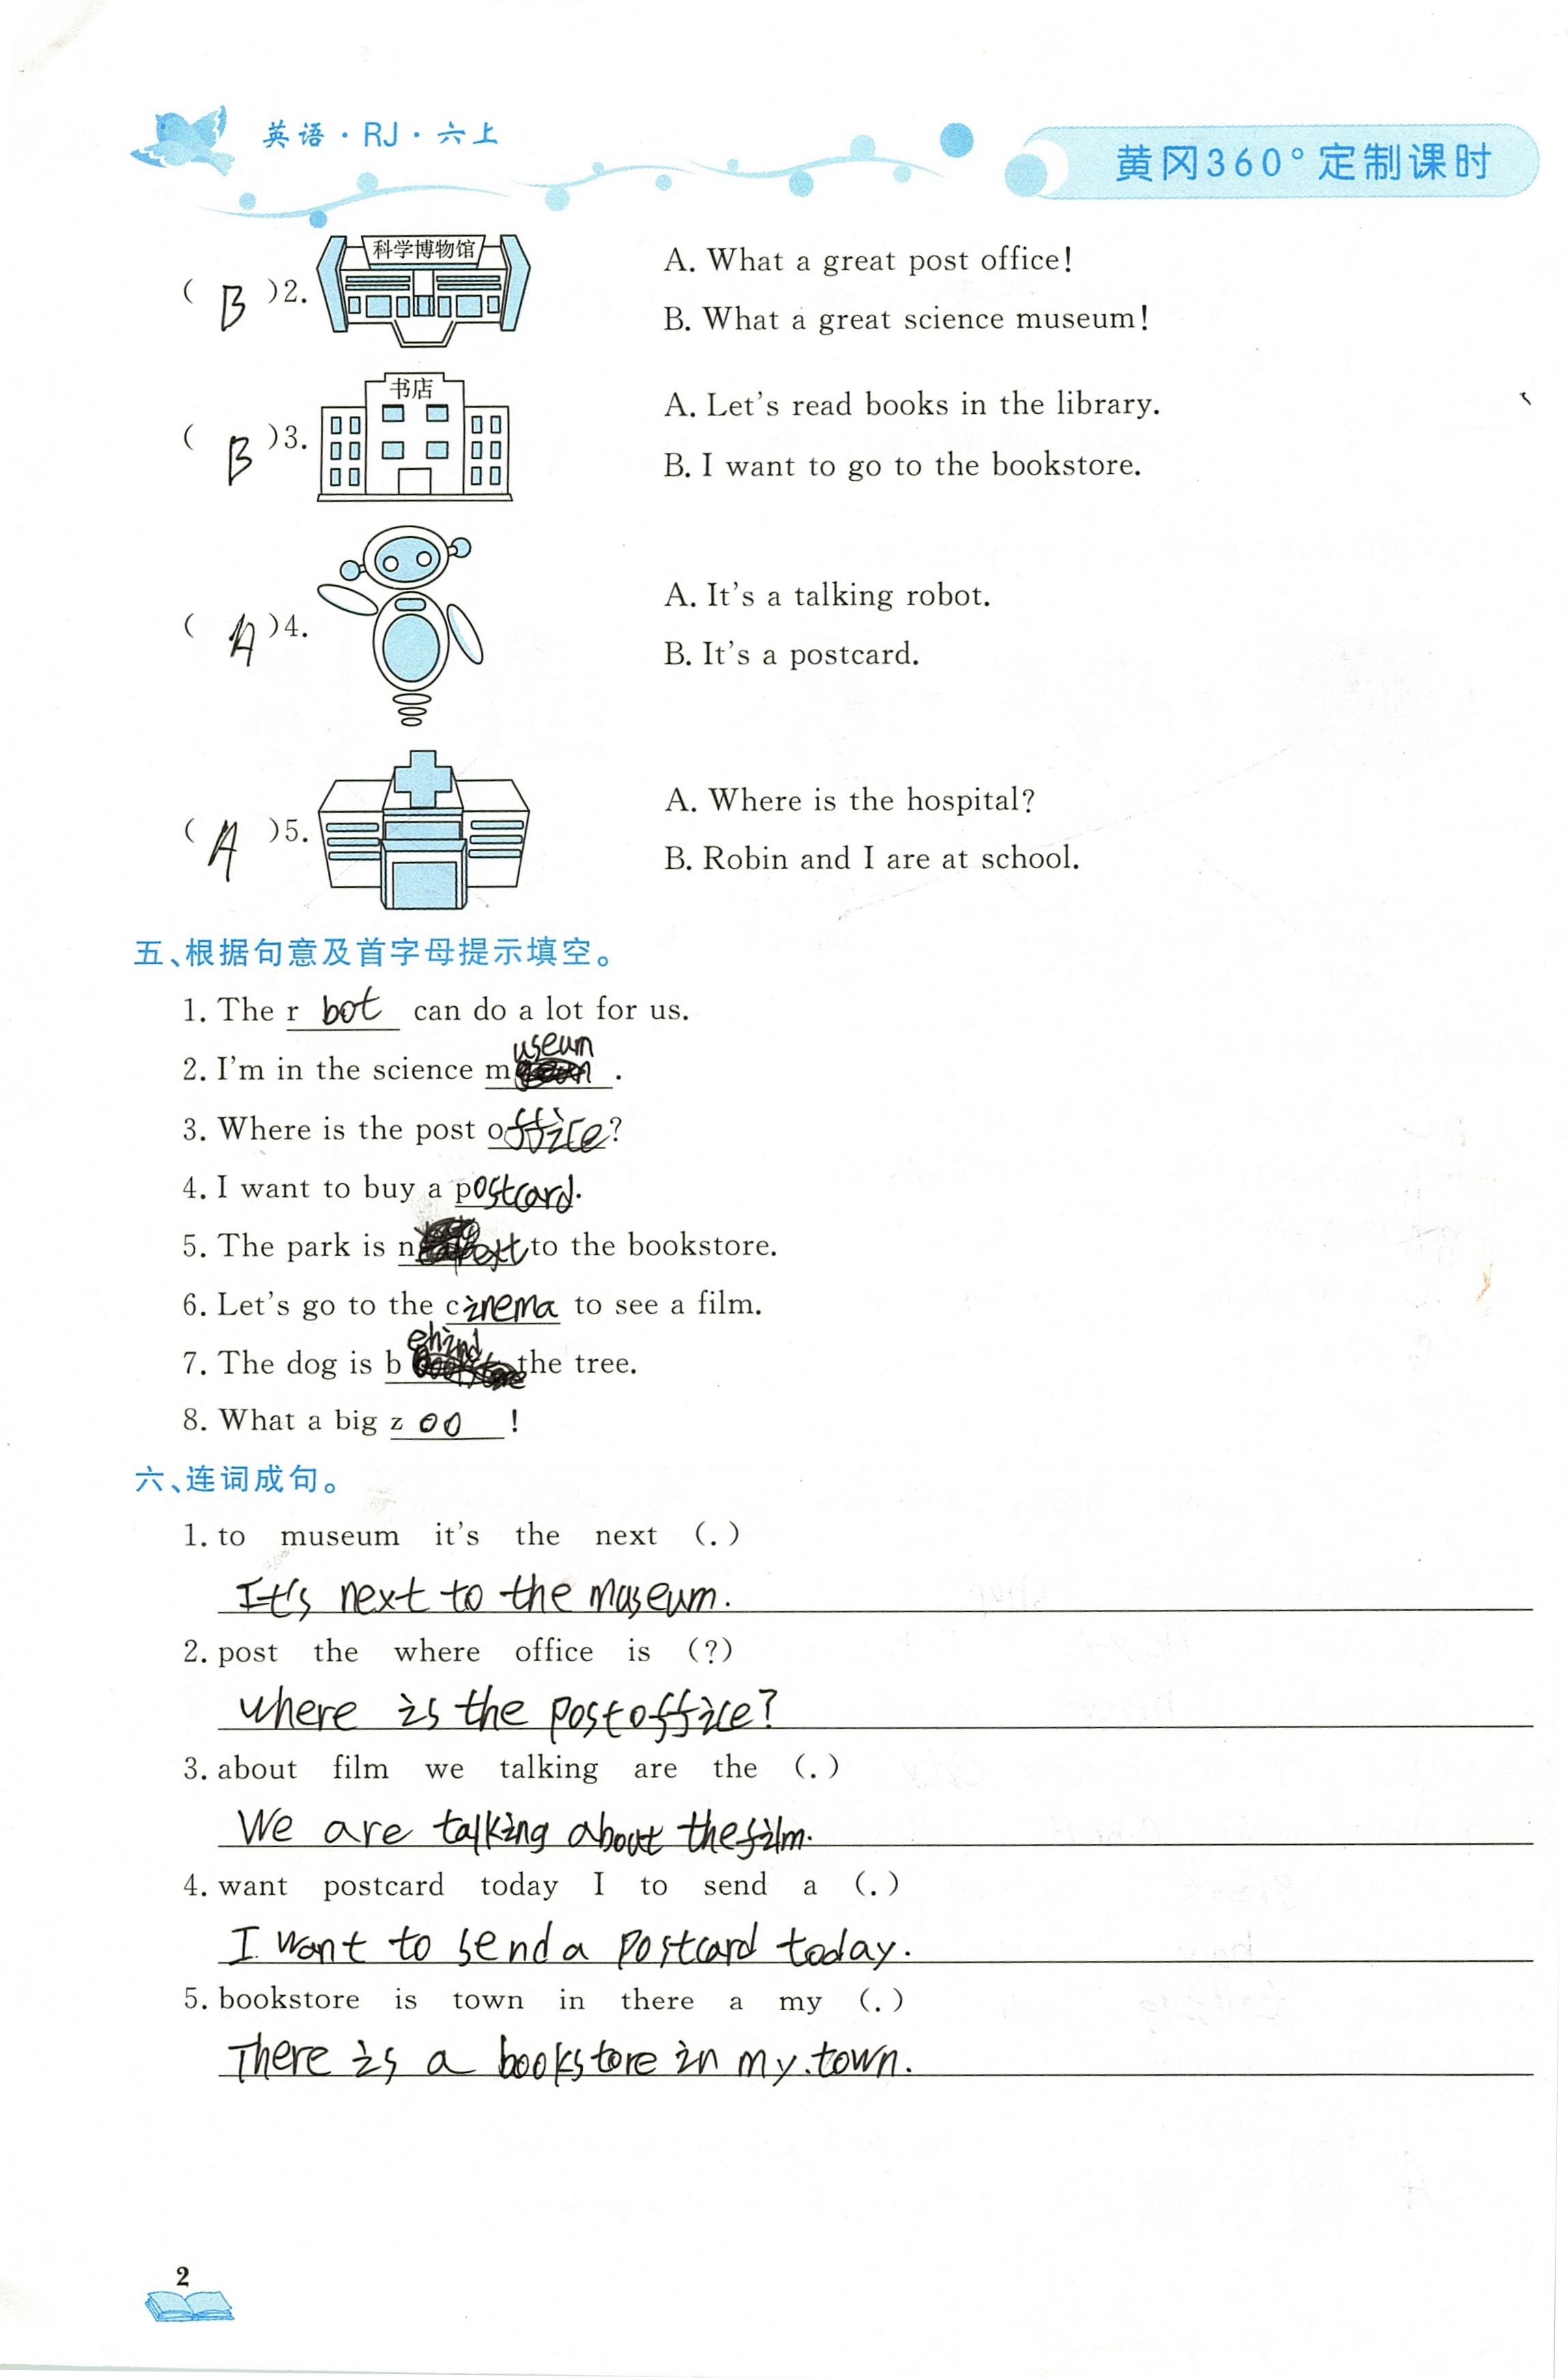 英语·RJ·六上
黄冈360°定制课时
( B )2. 科学博物馆 A. What a great post office!
B. What a great science museum!
( B )3. 书店 A. Let's read books in the library.
B. I want to go to the bookstore.
( A )4. A. It's a talking robot.
B. It's a postcard.
( A )5. A. Where is the hospital?
B. Robin and I are at school.
五、根据句意及首字母提示填空。
1. The r bot can do a lot for us.
2. I'm in the science museum.
3. Where is the post office?
4. I want to buy a postcard.
5. The park is next to the bookstore.
6. Let's go to the cinema to see a film.
7. The dog is behind the tree.
8. What a big z oo !
六、连词成句。
1. to museum it's the next (.)
It's next to the museum.
2. post the where office is (?)
where is the post office?
3. about film we talking are the (.)
We are talking about the film.
4. want postcard today I to send a (.)
I want to send a postcard today.
5. bookstore is town in there a my (.)
There is a bookstore in my town.
2